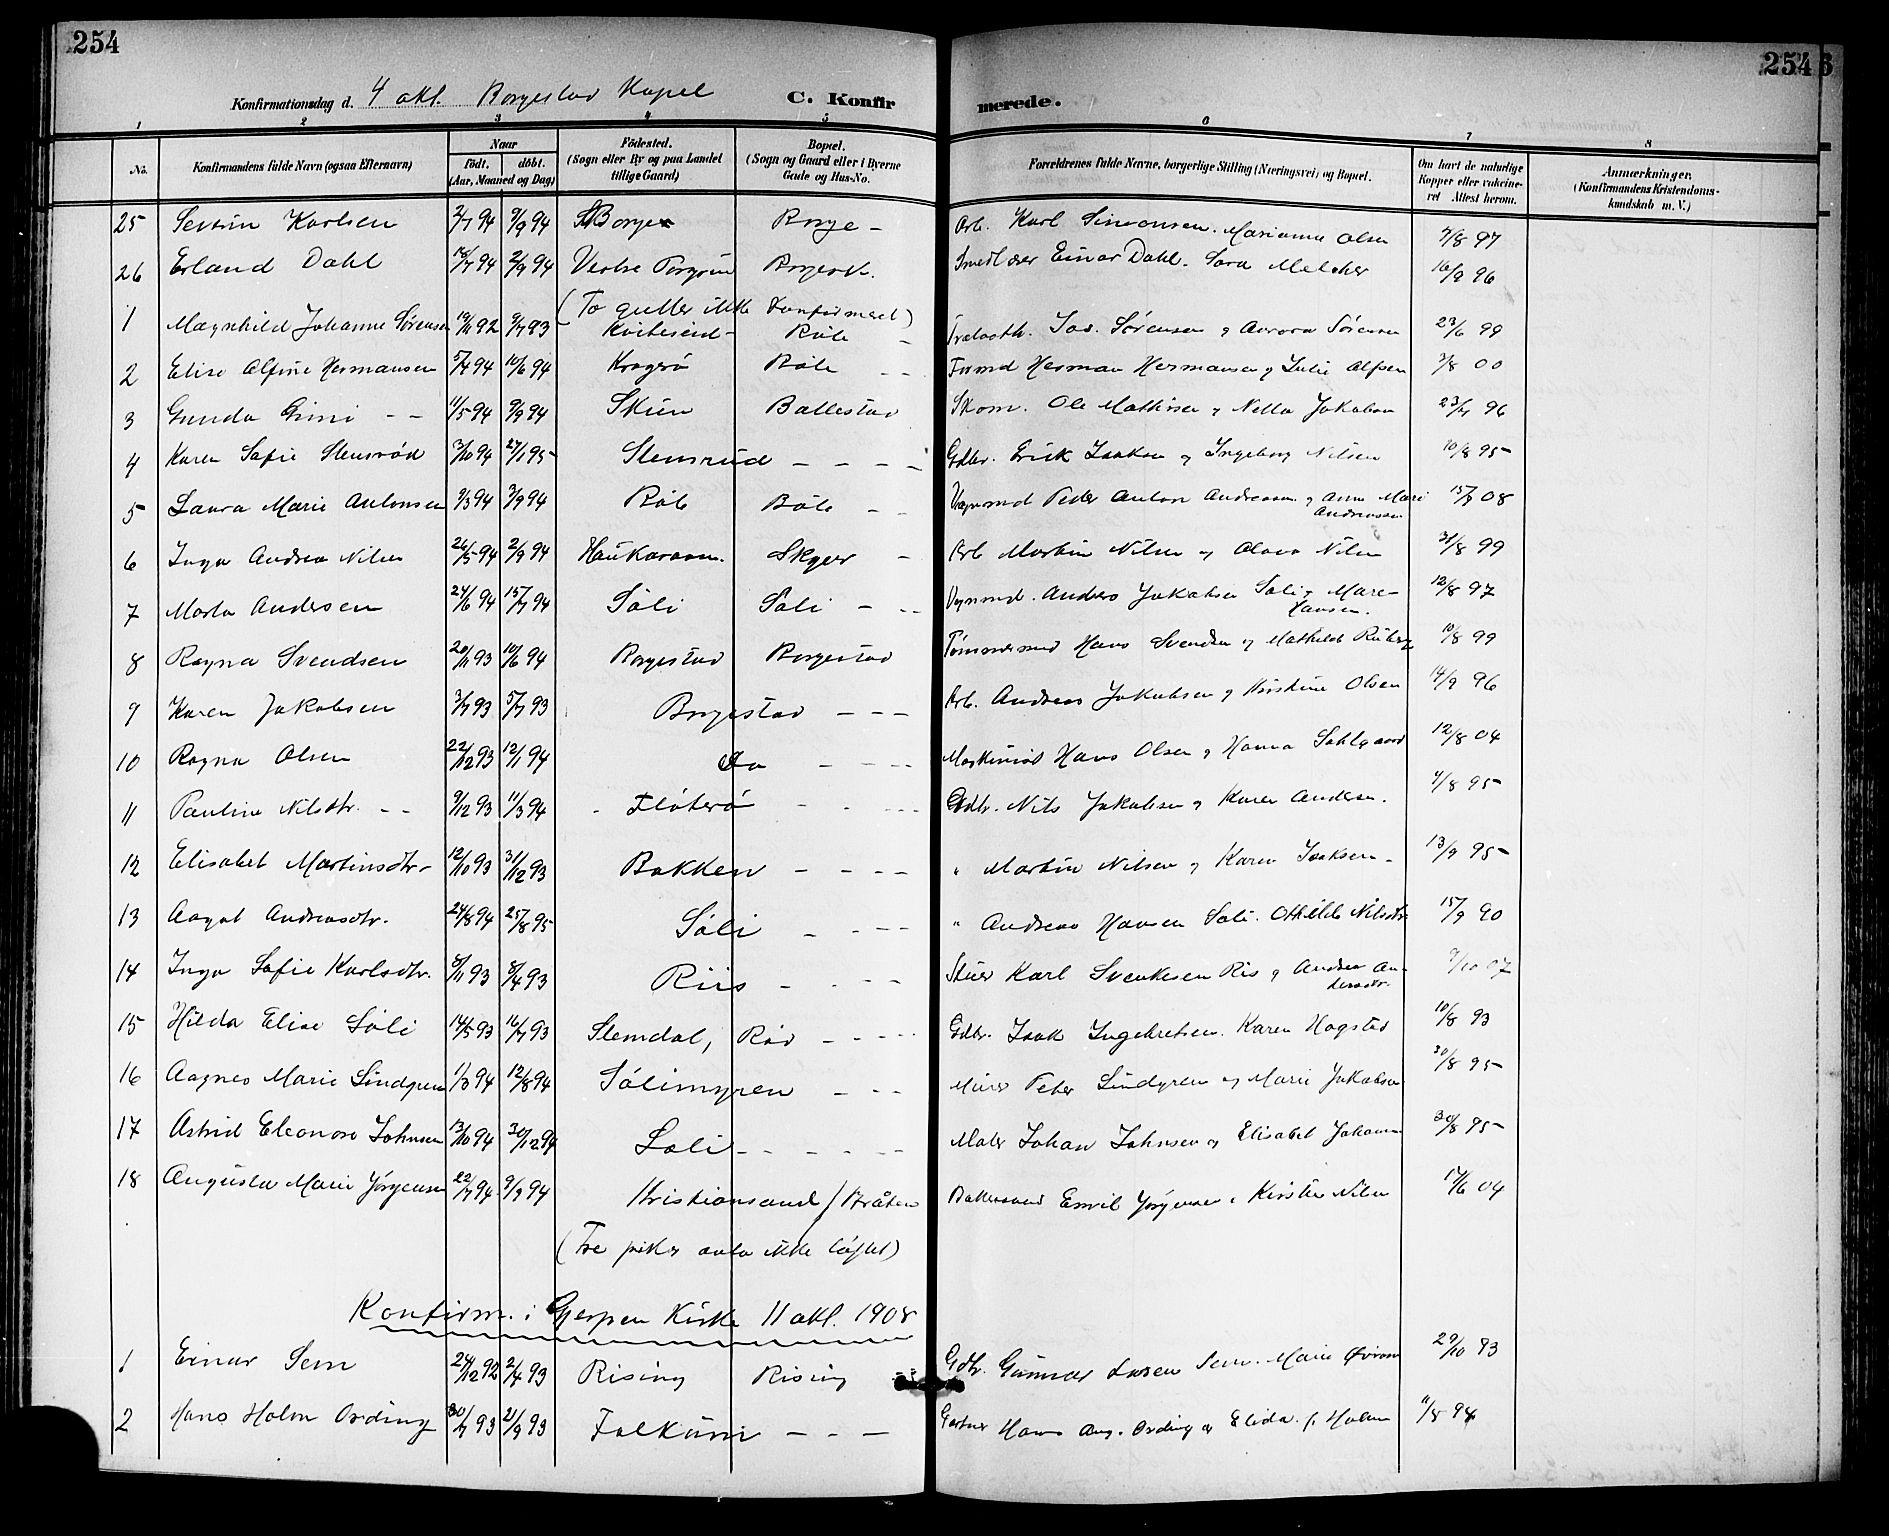 254
254
Konfirmationsdag d. 4 okt. Borgestad Kapel C. Konfirmerede.
1 2 3 4 5 6 7 8
No. Konfirmandens fulde Navn (ogsaa Efternavn) Naar födt. döbt. (Aar, Maaned og Dag) Födested. (Sogn eller By og paa Landet tillige Gaard) Bopæl. (Sogn og Gaard eller i Byerne Gade og Hus-No. Forældrenes fulde Navne, borgerlige Stilling (Næringsvei) og Bopæl. Om havt de naturlige Kopper eller vakcineret Attest herom. Anmærkninger. (Konfirmandens Kristendomskundskab m. V.)
25 Severin Karlsen 2/7 94 9/9 94 Borge Borge - Arb. Karl Simonsen. Marianne Olsen 9/8 97
26 Erland Dahl 16/7 94 2/9 94 Vestre Porgrun Borgest. Einar Dahl. Sara Melcher 16/9 96
(To gutter ikke konfirmeret)
1 Magnhild Johanne Sørensen 19/11 92 9/7 93 Kviteseid - Böle - Jas. Sørensen og Aurora Sörensen 23/6 99
2 Elise Alfine Hermansen 5/4 94 10/6 94 Kragerö Böle - - Herman Hermansen og Julie Alfsen 3/8 00
3 Gunda Gimi - - 11/5 94 9/9 94 Skien Ballestad Skom. Ole Mathisen og Nella Jakobsen 23/7 96
4 Karen Sofie Stensröd 3/10 94 27/1 95 Stensrud - - - - Gdbr. Erick Isaksen og Ingeborg Nilsen 10/8 95
5 Laura Marie Antonsen 9/3 94 3/9 94 Böle Böle - - Peder Anton Andreasen og Anne Marie Andreassen 15/9 08
6 Inga Andrea Nilsen 26/5 94 2/9 94 Haukaraan. Skyer - Arb Martin Nilsen og Olava Nilsen 31/8 99
7 Marta Andersen 24/6 94 15/7 94 Söli Söli - - Vognmd. Anders Jakobsen Söli og Maren Hansen. 12/8 97
8 Ragna Svendsen 20/11 93 10/6 94 Borgestad Borgestad Tömmermd Hans Svendsen og Mathilde Ruberg 10/8 99
9 Karen Jakobsen 3/7 93 5/7 93 Borgestad - - - Arb. Andreas Jakobsen og Kirstine Olsen 14/9 96
10 Ragna Olsen 22/12 93 12/1 94 Do - - - - Maskinist Hans Olsen og Hanna Dahlgaard 12/8 04
11 Pauline Nilsdtr. - - 9/12 93 11/3 94 - Flöterö - - - - Gdbr. Nils Jakobsen og Karen Andersen. 4/8 95
12 Elisabet Martinsdtr - 12/10 93 31/12 93 Bakken - - - - " Martin Nilsen og Karen Isaksen - 13/9 95
13 Aagot Andreasdtr. 24/8 94 25/8 95 Söli - - - - " Andreas Hansen Söli. Othilde Nilsdtr 15/9 90
14 Inga Sofie Karlsdtr. 8/11 93 8/4 93 Riis - - - - Karl Svenkesen Ris og Andrea Andersdtr. 9/10 07
15 Hilda Elise Söli 14/5 93 16/7 93 Stemdal, Röd - - - - Gdbr. Isak Ingebretsen. Karen Hogstad 10/8 93
16 Aagnes Marie Lindgren 1/8 94 12/8 94 Sölimyren - - - Murer Peter Lindgren og Marie Jakobsen 30/8 95
17 Astrid Eleonore Johnsen 13/10 94 30/12 94 Söli - - - - - Maler Johan Johnsen og Elisabet Johansen 30/8 95
18 Augusta Marie Jörgensen 22/7 94 9/9 94 Kristiansand / Bråten Emil Jörgensen og Kirstine Nilsen 17/6 04
(Tre piker avla ikke löftet)
Konfirm. i Gjerpen Kirke 11 okt. 1908
1 Einar Sem 24/12 92 2/4 93 Rising Rising Gdbr. Gunnar Larsen Sem. Marie Övrum 29/10 93
2 Hans Holm Ording 30/7 93 21/9 93 Falkum - - - Gartner Hans Aug. Ording og Elida f. Holm 11/8 94